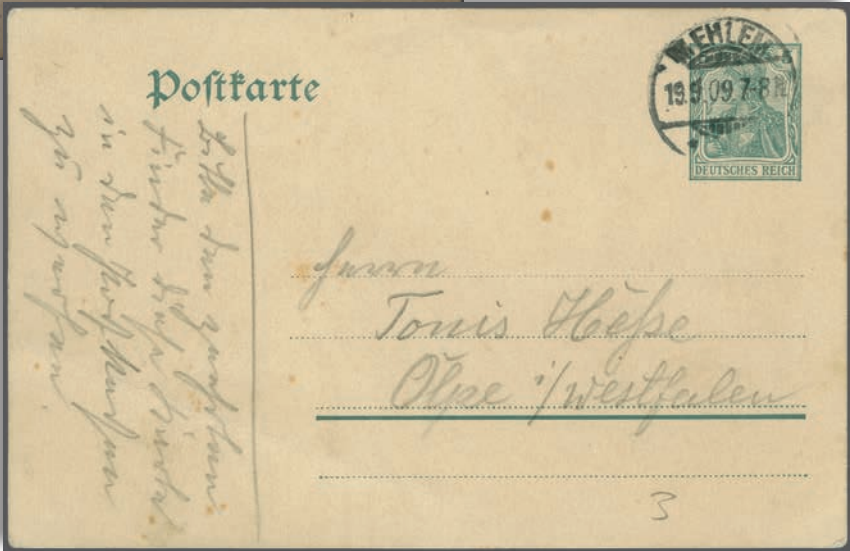 Postkarte
MEHLEM
19.9.09 7-8 N
DEUTSCHES REICH
Bitte den geehrten
Finder diese Karte
in den Postkasten
zu werfen.
Herrn
Tonis Hesse
Olpe i/Westfalen
3